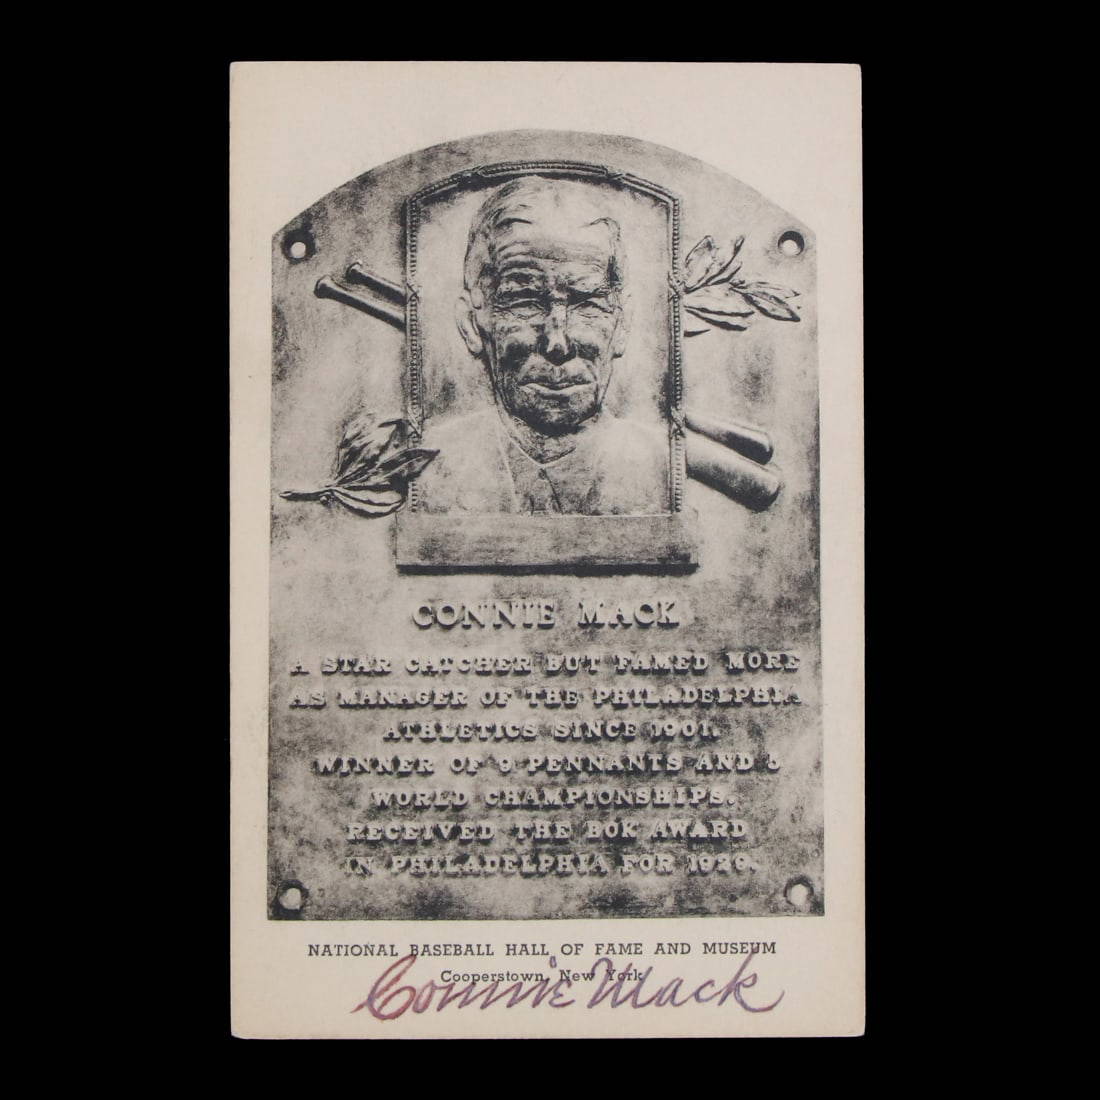 CONNIE MACK
A STAR CATCHER BUT FAMED MORE
AS MANAGER OF THE PHILADELPHIA
ATHLETICS SINCE 1901.
WINNER OF 9 PENNANTS AND 5
WORLD CHAMPIONSHIPS.
RECEIVED THE BOK AWARD
IN PHILADELPHIA FOR 1929.
NATIONAL BASEBALL HALL OF FAME AND MUSEUM
Cooperstown, New York
Connie Mack